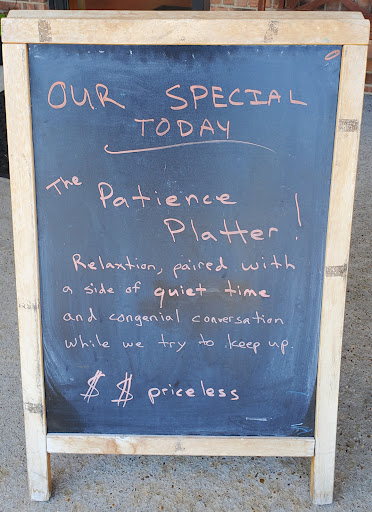 OUR SPECIAL
TODAY
The Patience
Platter!
Relaxtion, paired with
a side of quiet time
and congenial conversation
while we try to keep up.
$ $ priceless